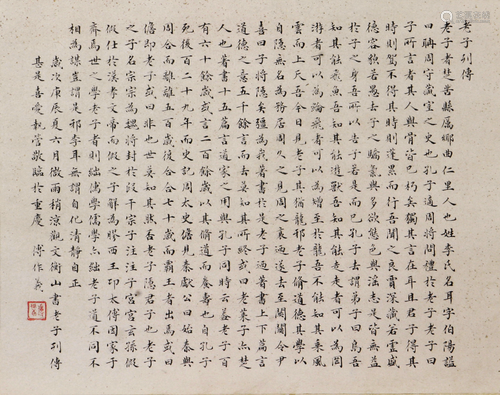 老子列傳
老子者楚苦縣厲鄉曲仁里人也姓李氏名耳字伯陽謚
曰聃周守藏室之史也孔子適周將問禮於老子老子曰
子所言者其人與骨皆已朽矣獨其言在耳且君子得其
時則駕不得其時則蓬累而行吾聞之良賈深藏若虛盛
德容貌若愚去子之驕氣與多欲態色與淫志是皆無益
於子之身吾所以告子若是而已孔子去謂弟子曰鳥吾
知其能飛魚吾知其能游獸吾知其能走走者可以為罔
游者可以為綸飛者可以為矰至於龍吾不能知其乘風
雲而上天吾今日見老子其猶龍邪老子脩道德其學以
自隱無名為務居周久之見周之衰迺遂去至關關令尹
喜曰子將隱矣彊為我著書於是老子迺著書上下篇言
道德之意五千餘言而去莫知其所終或曰老萊子亦楚
人也著書十五篇言道家之用與孔子同時云蓋老子百
有六十餘歲或言二百餘歲以其脩道而養壽也自孔子
死後百二十九年而史記周太史儋見秦獻公曰始秦與
周合而離離五百歲後合合七十歲而霸王者出焉或曰
儋即老子或曰非也世莫知其然否老子隱君子也老子
之子名宗宗為魏將封於段干宗子注注子宮宮玄孫假
假仕於漢孝文帝而假之子解為膠西王卬太傅因家于
齊焉世之學老子者則絀儒學儒學亦絀老子道不同不
相為謀豈謂是邪李耳無為自化清靜自正
歲次庚辰夏六月微雨稍涼觀文衡山書老子列傳
甚是喜愛執管敬臨於重慶 傅作義